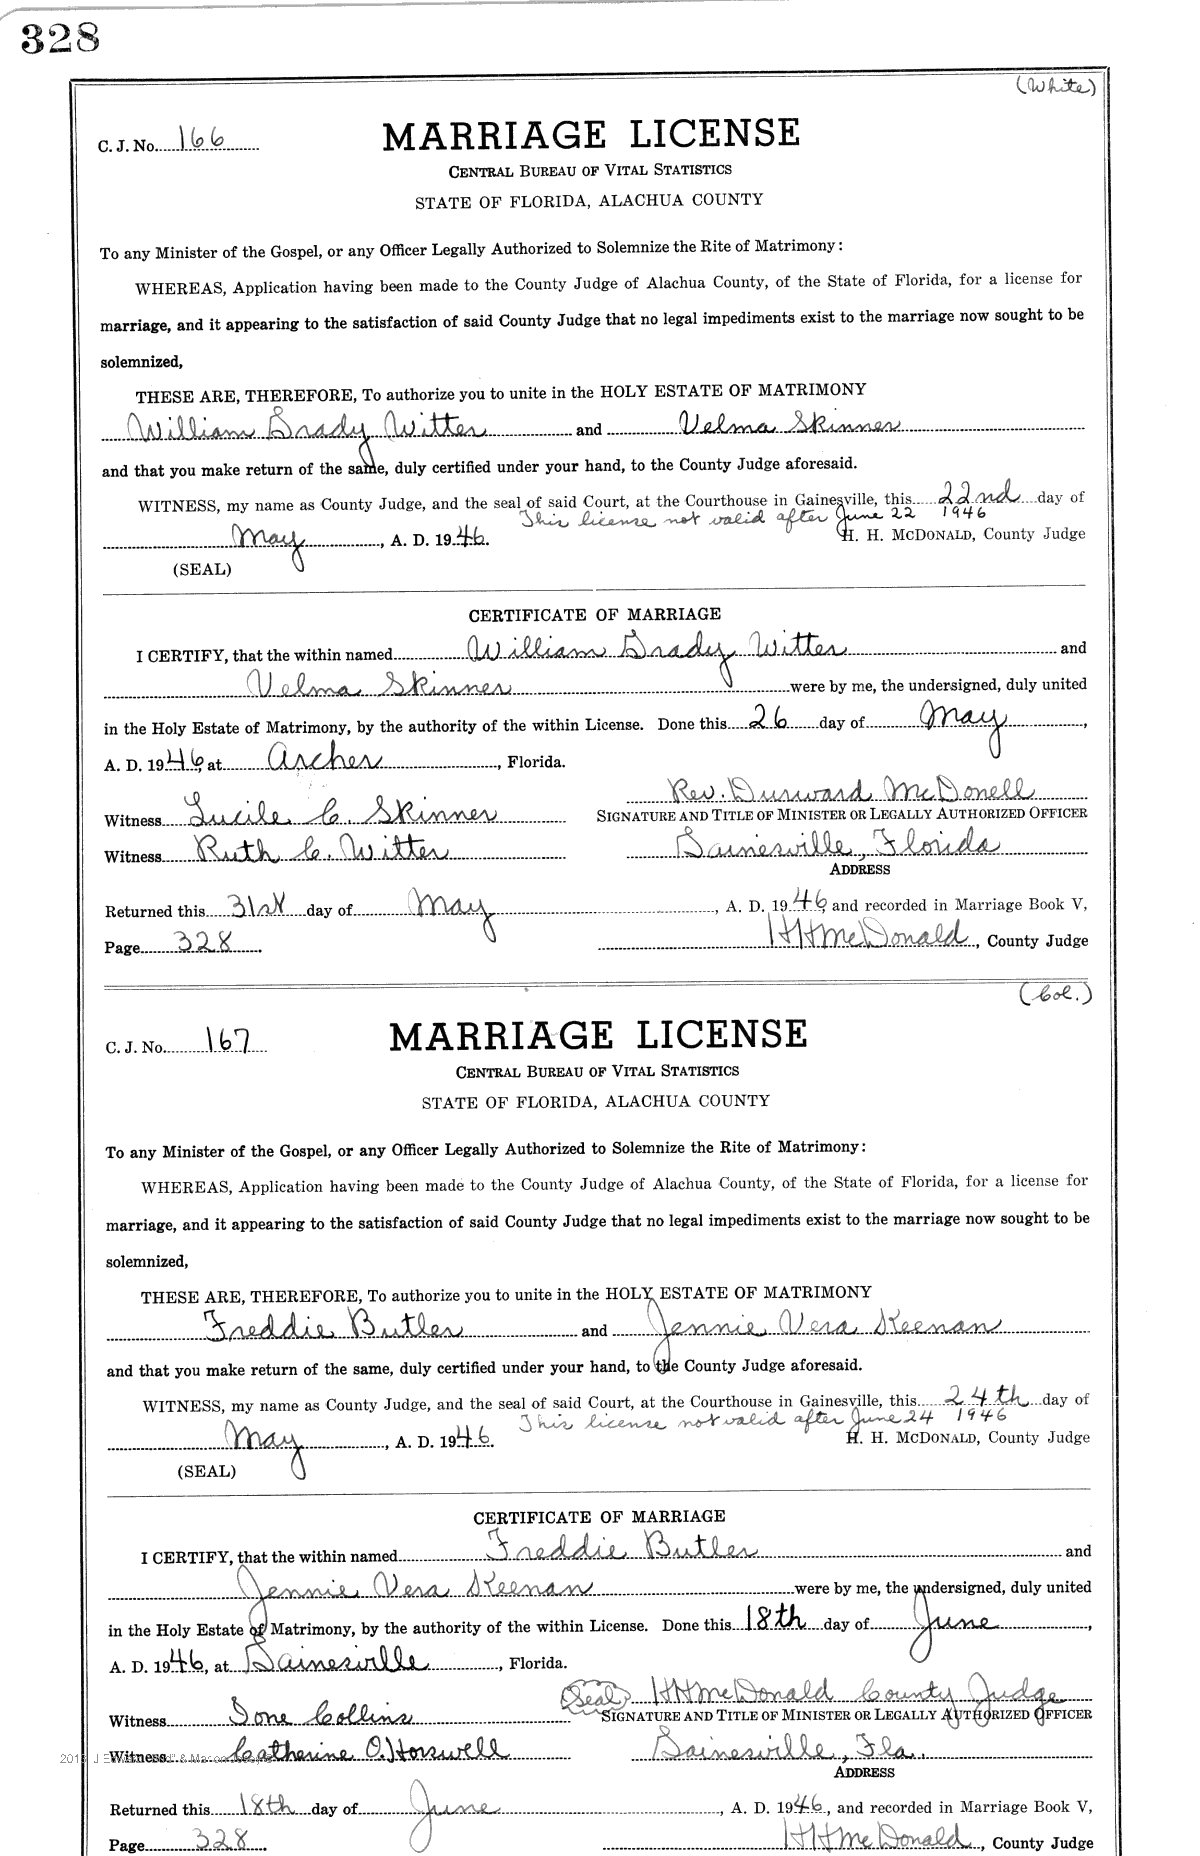 328
(White)
C. J. No. 166
MARRIAGE LICENSE
CENTRAL BUREAU OF VITAL STATISTICS
STATE OF FLORIDA, ALACHUA COUNTY
To any Minister of the Gospel, or any Officer Legally Authorized to Solemnize the Rite of Matrimony:
WHEREAS, Application having been made to the County Judge of Alachua County, of the State of Florida, for a license for
marriage, and it appearing to the satisfaction of said County Judge that no legal impediments exist to the marriage now sought to be
solemnized,
THESE ARE, THEREFORE, To authorize you to unite in the HOLY ESTATE OF MATRIMONY
William Grady Witter and Velma Skinner
and that you make return of the same, duly certified under your hand, to the County Judge aforesaid.
WITNESS, my name as County Judge, and the seal of said Court, at the Courthouse in Gainesville, this 22nd day of
This license not valid after June 22 1946
May, A. D. 1946. H. H. MCDONALD, County Judge
(SEAL)
CERTIFICATE OF MARRIAGE
I CERTIFY, that the within named William Grady Witter and
Velma Skinner were by me, the undersigned, duly united
in the Holy Estate of Matrimony, by the authority of the within License. Done this 26 day of May,
A. D. 1946, at Archer, Florida.
Rev. Durward McDonell
Witness Lucile C. Skinner SIGNATURE AND TITLE OF MINISTER OR LEGALLY AUTHORIZED OFFICER
Witness Ruth C. Witter Gainesville, Florida
ADDRESS
Returned this 31st day of May, A. D. 1946, and recorded in Marriage Book V,
Page 328. H H McDonald, County Judge
(Col.)
C. J. No. 167
MARRIAGE LICENSE
CENTRAL BUREAU OF VITAL STATISTICS
STATE OF FLORIDA, ALACHUA COUNTY
To any Minister of the Gospel, or any Officer Legally Authorized to Solemnize the Rite of Matrimony:
WHEREAS, Application having been made to the County Judge of Alachua County, of the State of Florida, for a license for
marriage, and it appearing to the satisfaction of said County Judge that no legal impediments exist to the marriage now sought to be
solemnized,
THESE ARE, THEREFORE, To authorize you to unite in the HOLY ESTATE OF MATRIMONY
Freddie Butler and Jennie Vera Keenan
and that you make return of the same, duly certified under your hand, to the County Judge aforesaid.
WITNESS, my name as County Judge, and the seal of said Court, at the Courthouse in Gainesville, this 24th day of
This license not valid after June 24 1946
May, A. D. 1946. H. H. MCDONALD, County Judge
(SEAL)
CERTIFICATE OF MARRIAGE
I CERTIFY, that the within named Freddie Butler and
Jennie Vera Keenan were by me, the undersigned, duly united
in the Holy Estate of Matrimony, by the authority of the within License. Done this 18th day of June,
A. D. 1946, at Gainesville, Florida.
(Seal) H H McDonald County Judge
Witness Ione Collins SIGNATURE AND TITLE OF MINISTER OR LEGALLY AUTHORIZED OFFICER
Witness Catherine O. Horswell Gainesville, Fla.
ADDRESS
Returned this 18th day of June, A. D. 1946, and recorded in Marriage Book V,
Page 328. H H McDonald, County Judge